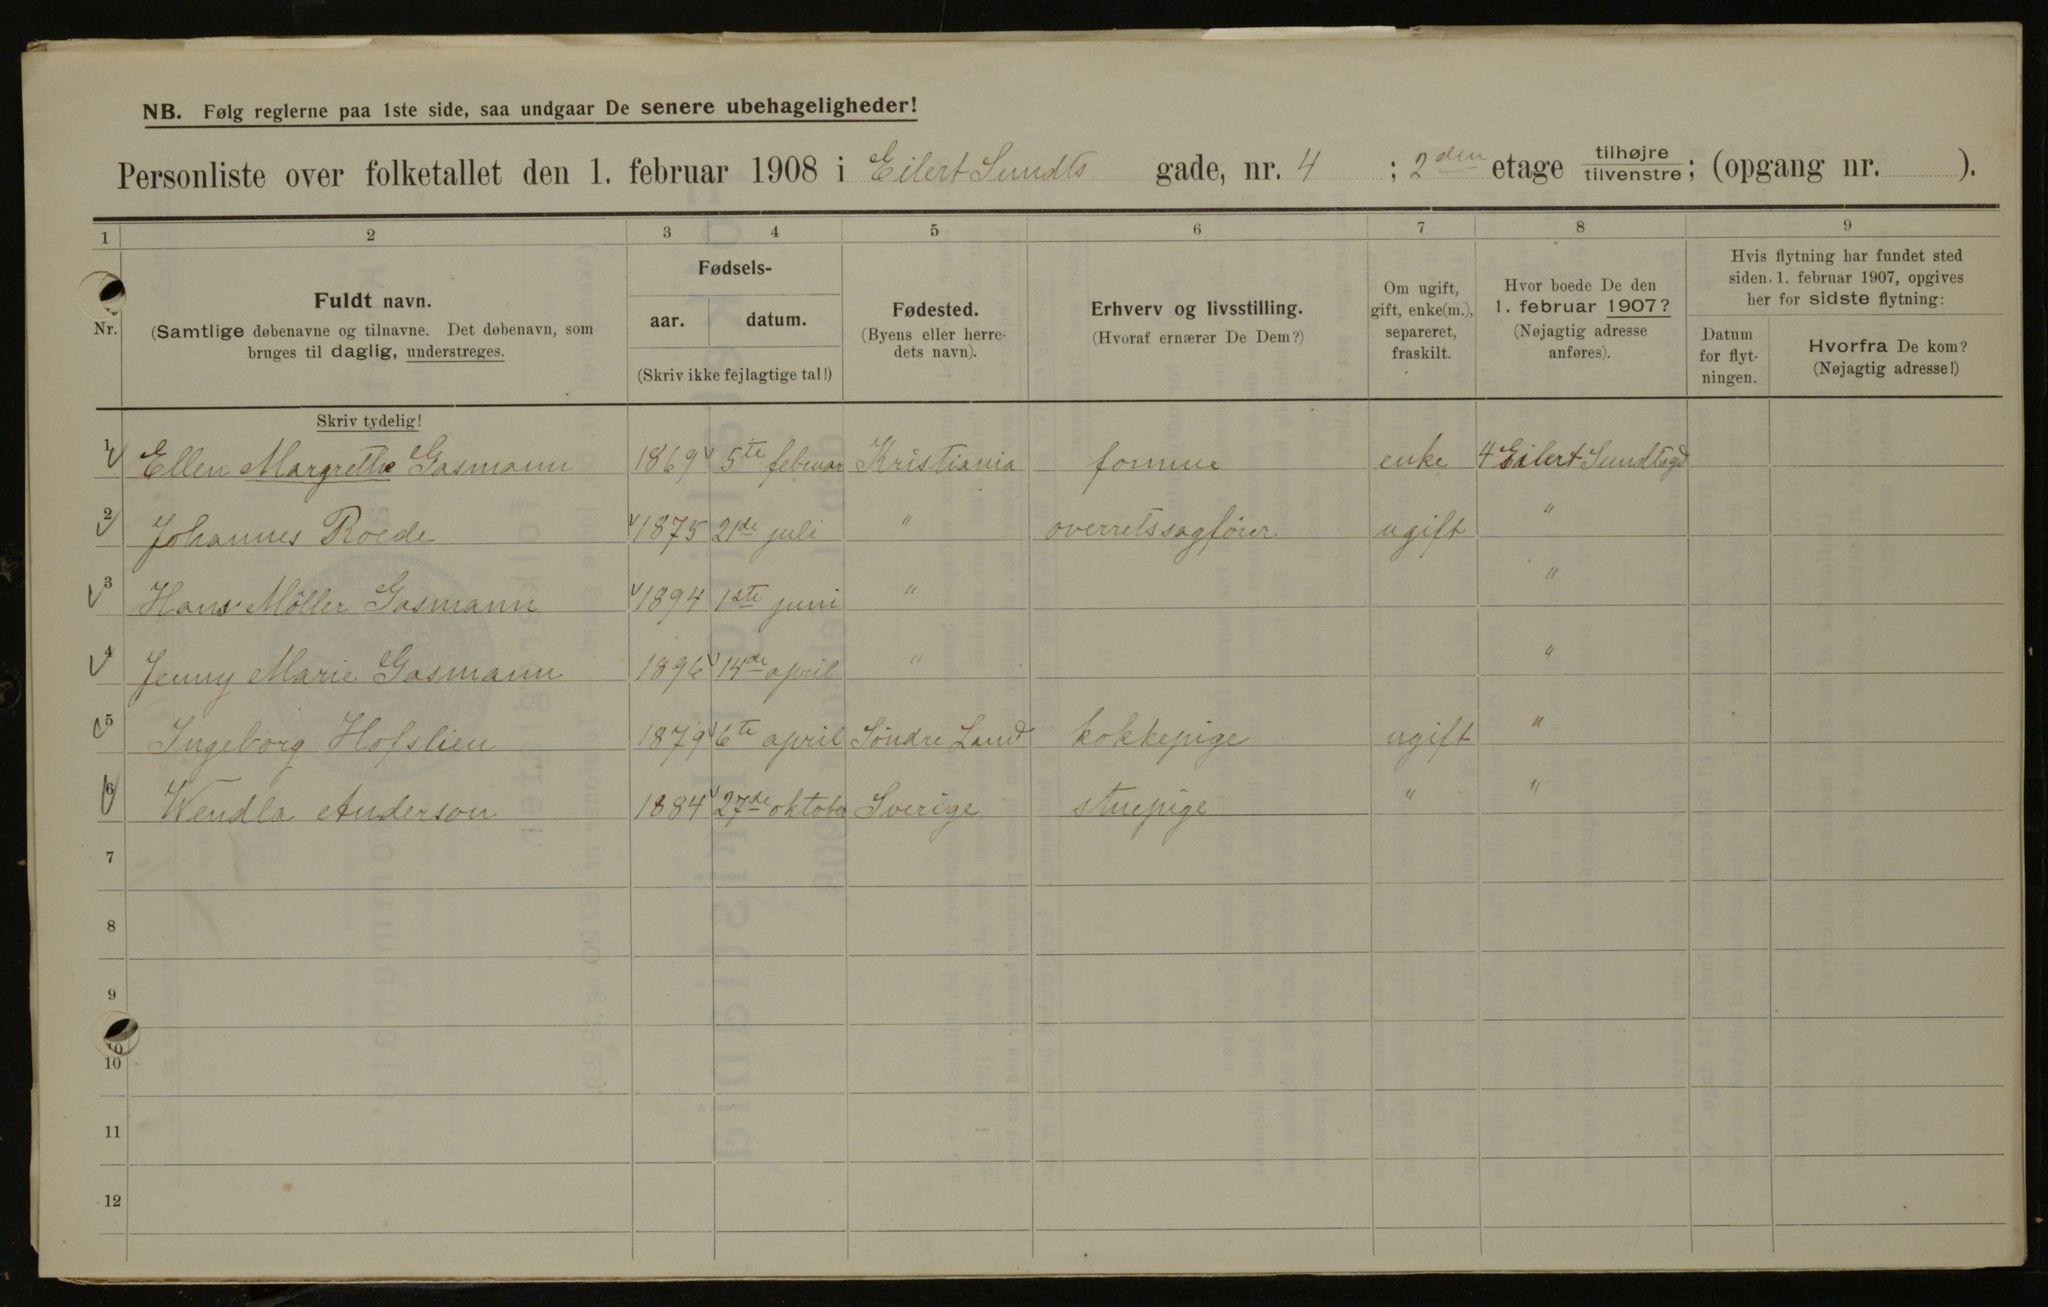 NB. Følg reglerne paa 1ste side, saa undgaar De senere ubehageligheder!
Personliste over folketallet den 1. februar 1908 i Eilert Sundts gade, nr. 4 ; 2den etage tilhøjre/tilvenstre; (opgang nr. ).
1 2 3 4 5 6 7 8 9
Nr.
Fuldt navn.
(Samtlige døbenavne og tilnavne. Det døbenavn, som
bruges til daglig, understreges.
Fødsels-
aar. datum.
(Skriv ikke fejlagtige tal!)
Fødested.
(Byens eller herre-
dets navn).
Erhverv og livsstilling.
(Hvoraf ernærer De Dem?)
Om ugift,
gift, enke(m.),
separeret,
fraskilt.
Hvor boede De den
1. februar 1907?
(Nøjagtig adresse
anføres).
Hvis flytning har fundet sted
siden 1. februar 1907, opgives
her for sidste flytning:
Datum
for flyt-
ningen.
Hvorfra De kom?
(Nøjagtig adresse!)
Skriv tydelig!
1 Ellen Margrethe Gasmann 1869 5te februar Kristiania formue enke 4 Eilert Sundtsgd
2 Johannes Roede 1875 21de juli " overretssagfører ugift "
3 Hans Möller Gasmann 1894 1ste juni " "
4 Jenny Marie Gasmann 1896 14de april " "
5 Ingeborg Hofslien 1879 6te april Söndre Land kokkepige ugift "
6 Wendla Anderson 1884 27de oktober Sverige stuepige " "
7
8
9
10
10
11
12